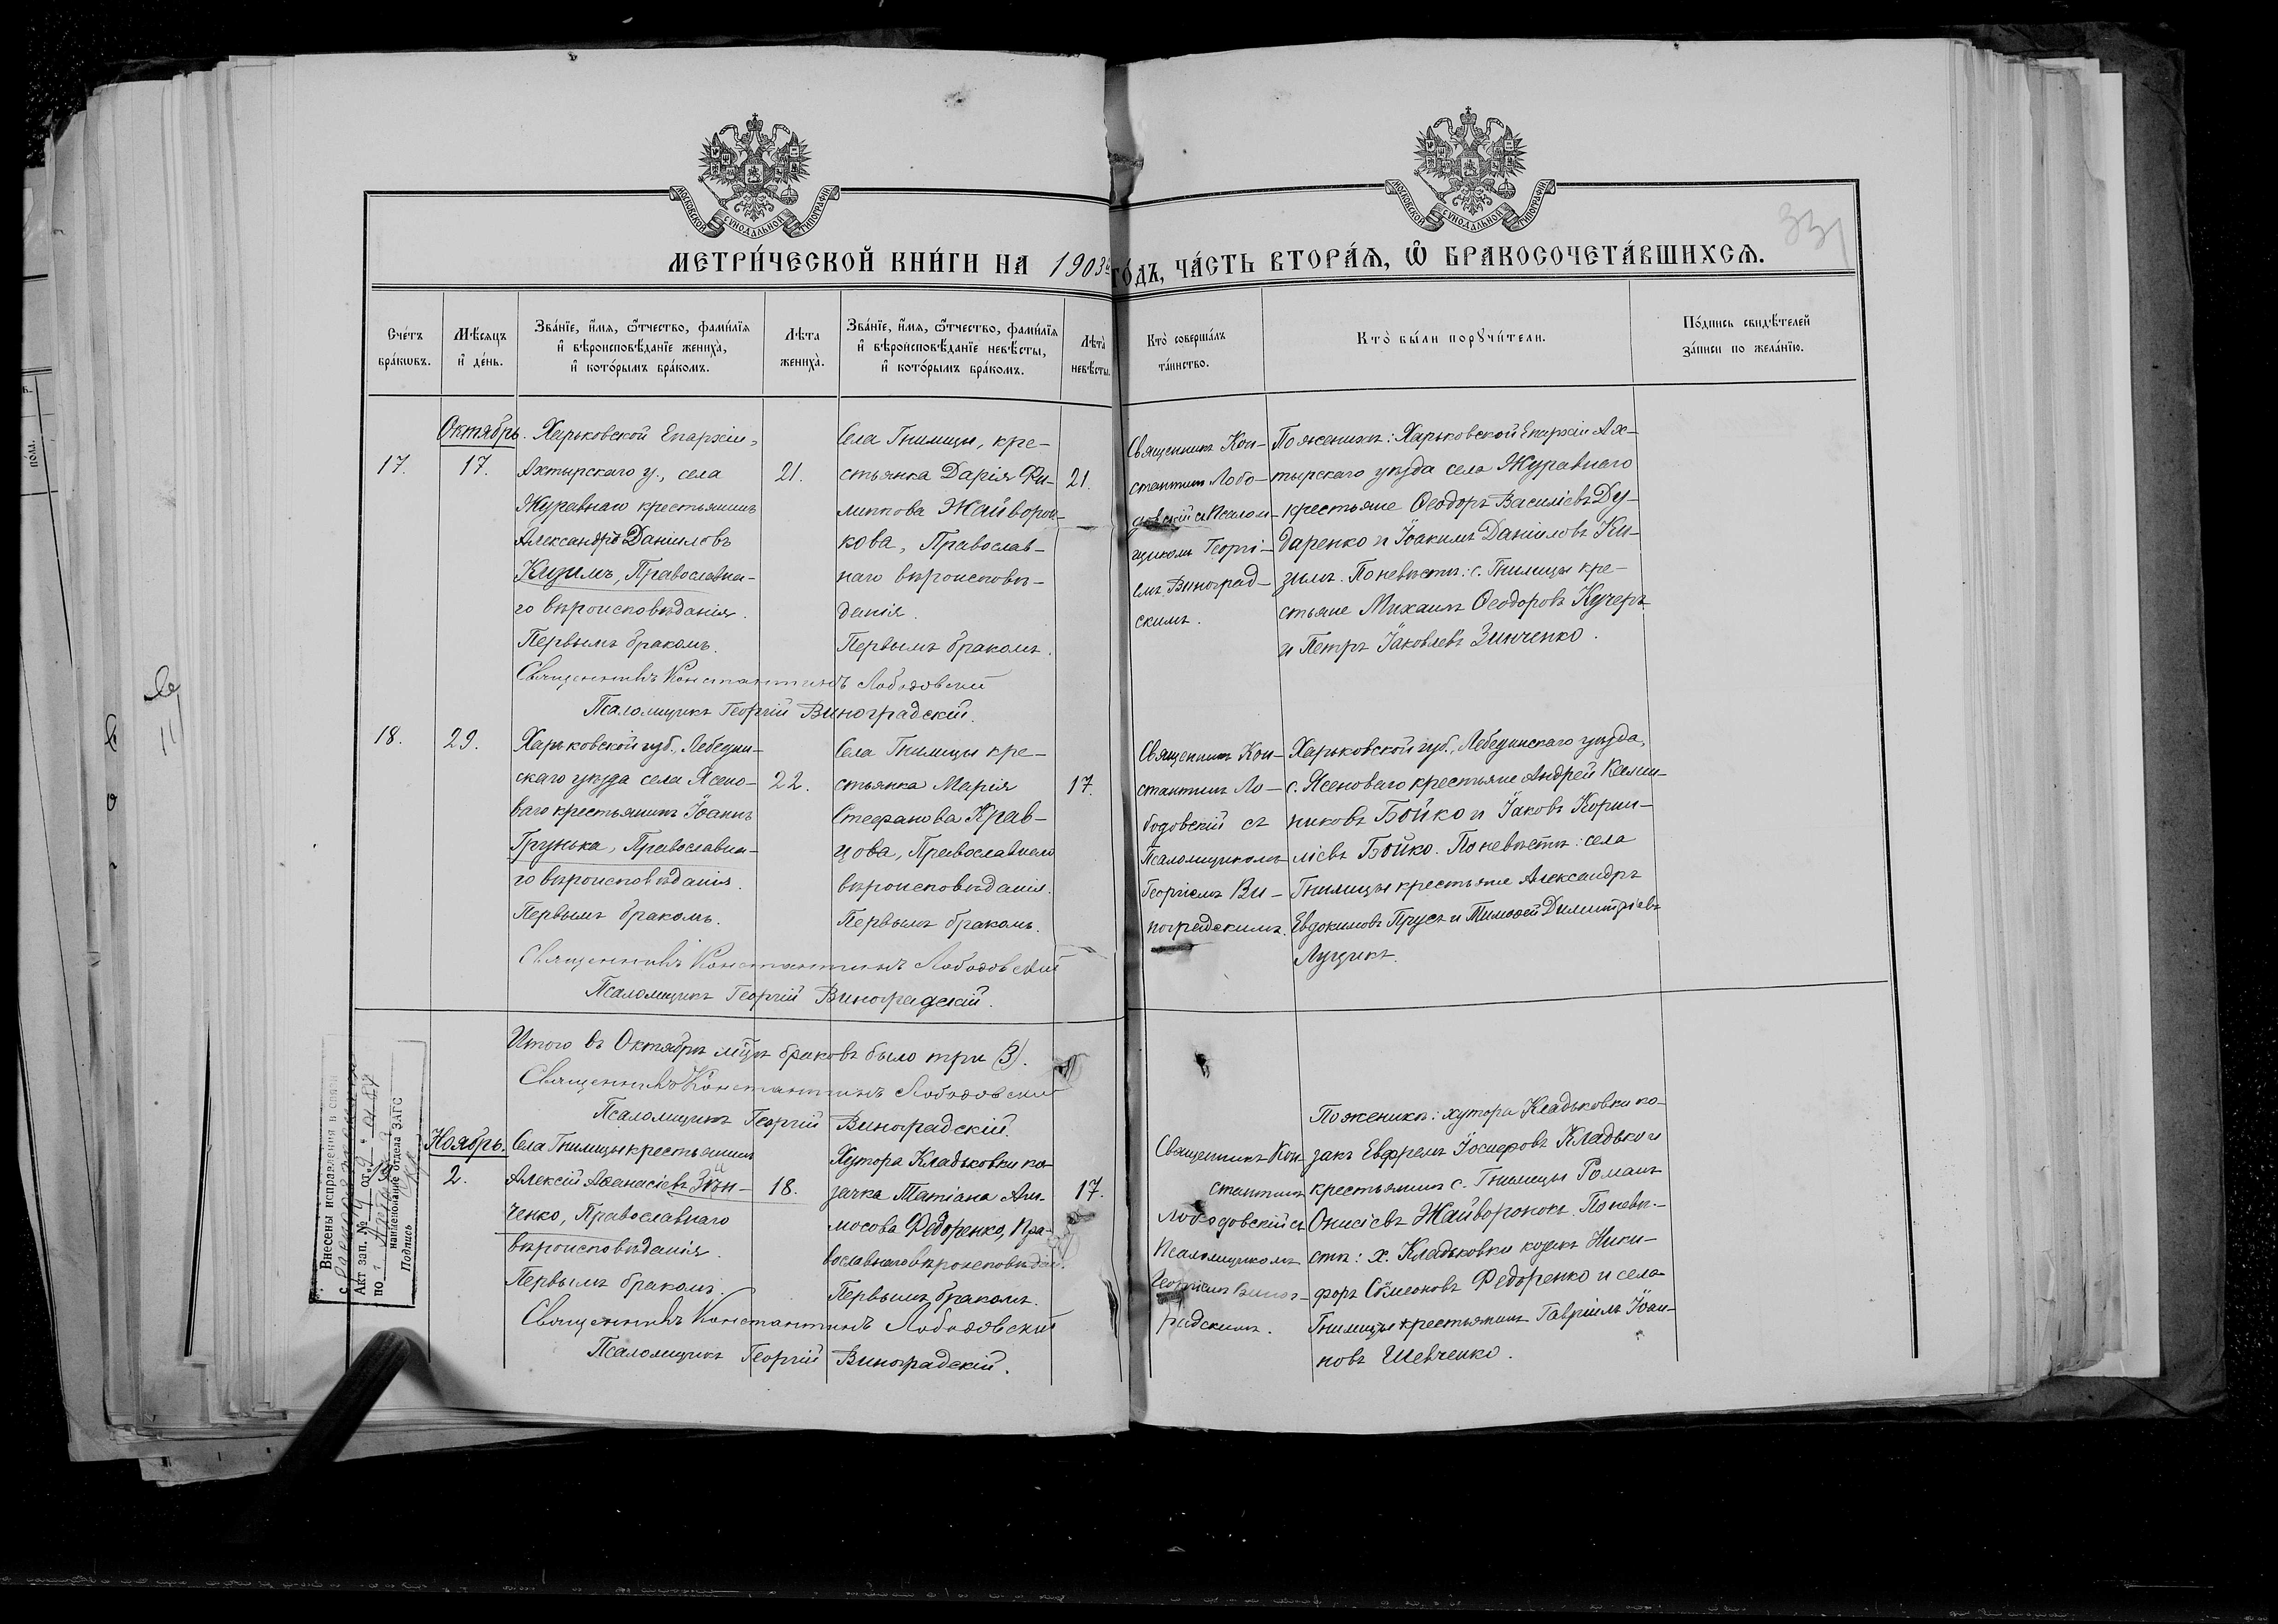 МОСКОВСКОЙ СУНОДАЛЬНОЙ ТИПОГРАФІИ
МОСКОВСКОЙ СУНОДАЛЬНОЙ ТИПОГРАФІИ
МЕТРИ́ЧЕСКОЙ КНИ́ГИ НА 1903й ГО́ДЪ, ЧА́СТЬ ВТОРА́Ѧ, Ѡ БРАКОСОЧЕТА́ВШИХСѦ.
331
Сче́тъ бра́кѡвъ.
Мѣ́сяцъ и҆ де́нь.
Зва́нїе, и҆́мѧ, ѻ҆́тчество, фами́лїѧ
и҆ вѣроисповѣ́данїе жениха̀,
и҆ кото́рымъ бра́комъ.
Лѣ́та жениха̀.
Зва́нїе, и҆́мѧ, ѻ҆́тчество, фами́лїѧ
и҆ вѣроисповѣ́данїе невѣ́сты,
и҆ кото́рымъ бра́комъ.
Лѣ́та невѣ́сты.
Кто̀ соверша́лъ
та́инство.
Кто̀ бы́ли порꙋчи́тели.
По́дпись свидѣ́телей
за́писи по жела́нїю.
Октябрь.
17.
17.
Харьковской Епархіи,
Ахтырскаго у., села
Журавнаго крестьянинъ
Александръ Даніиловъ
Кизимъ, Православна-
го вѣроисповѣданія.
Первымъ бракомъ.
21.
Села Гнилицы, кре-
стьянка Дарія Фи-
липпова Жайворон-
кова, Православ-
наго вѣроисповѣ-
данія.
Первымъ бракомъ.
21.
Священникъ Кон-
стантинъ Лобо-
довскій съ Псалом-
щикомъ Георгі-
емъ Виноград-
скимъ.
По женихѣ: Харьковской Епархіи Ах-
тырскаго уѣзда села Журавнаго
крестьяне Ѳеодоръ Василіевъ Ду-
даренко и Іоакимъ Даніиловъ Ки-
зимъ. По невѣстѣ: с. Гнилицы кре-
стьяне Михаилъ Ѳеодоровъ Кучеръ
и Петръ Іаковлевъ Зинченко.
Священникъ Константинъ Лободовскій
Псаломщикъ Георгій Виноградскій.
18.
29.
Харьковской губ., Лебедин-
скаго уѣзда села Ясено-
ваго крестьянинъ Іоаннъ
Грунька, Православна-
го вѣроисповѣданія.
Первымъ бракомъ.
22.
Села Гнилицы кре-
стьянка Марія
Стефанова Крав-
цова, Православнаго
вѣроисповѣданія.
Первымъ бракомъ.
17.
Священникъ Кон-
стантинъ Ло-
бодовскій съ
Псаломщикомъ
Георгіемъ Ви-
ноградскимъ.
Харьковской губ., Лебединскаго уѣзда,
с. Ясеноваго крестьяне Андрей Калин-
никовъ Бойко и Іаковъ Корни-
ліевъ Бойко. По невѣстѣ: села
Гнилицы крестьяне Александръ
Евдокимовъ Прусъ и Тимоѳей Димитріевъ
Луцикъ.
Священникъ Константинъ Лободовскій
Псаломщикъ Георгій Виноградскій.
Итого въ Октябрѣ мѣцѣ браковъ было три (3).
Священникъ Константинъ Лободовскій
Псаломщикъ Георгій Виноградскій.
Внесены исправления в связи
с
Акт зап. № от
по
наименование отдела ЗАГС
Подпись
Ноябрь.
2.
Села Гнилицы крестьянинъ
Алексій Аѳанасіевъ Зін-
ченко, Православнаго
вѣроисповѣданія.
Первымъ бракомъ.
18.
Хутора Кладьковки ка-
зачка Татіана Ам-
мосова Федоренко, Пра-
вославнаго вѣроисповѣданія.
Первымъ бракомъ.
17.
Священникъ Кон-
стантинъ
Лободовскій съ
Псаломщикомъ
Георгіемъ Виног-
радскимъ.
По женихѣ: хутора Кладьковки ка-
закъ Евфремъ Іосифовъ Кладько и
крестьянинъ с. Гнилицы Романъ
Онисіевъ Жайворонокъ. По невѣ-
стѣ: х. Кладьковки козакъ Ники-
форъ Сѵмеоновъ Федоренко и села
Гнилицы крестьянинъ Гавріилъ Іоан-
новъ Шевченко.
Священникъ Константинъ Лободовскій
Псаломщикъ Георгій Виноградскій.